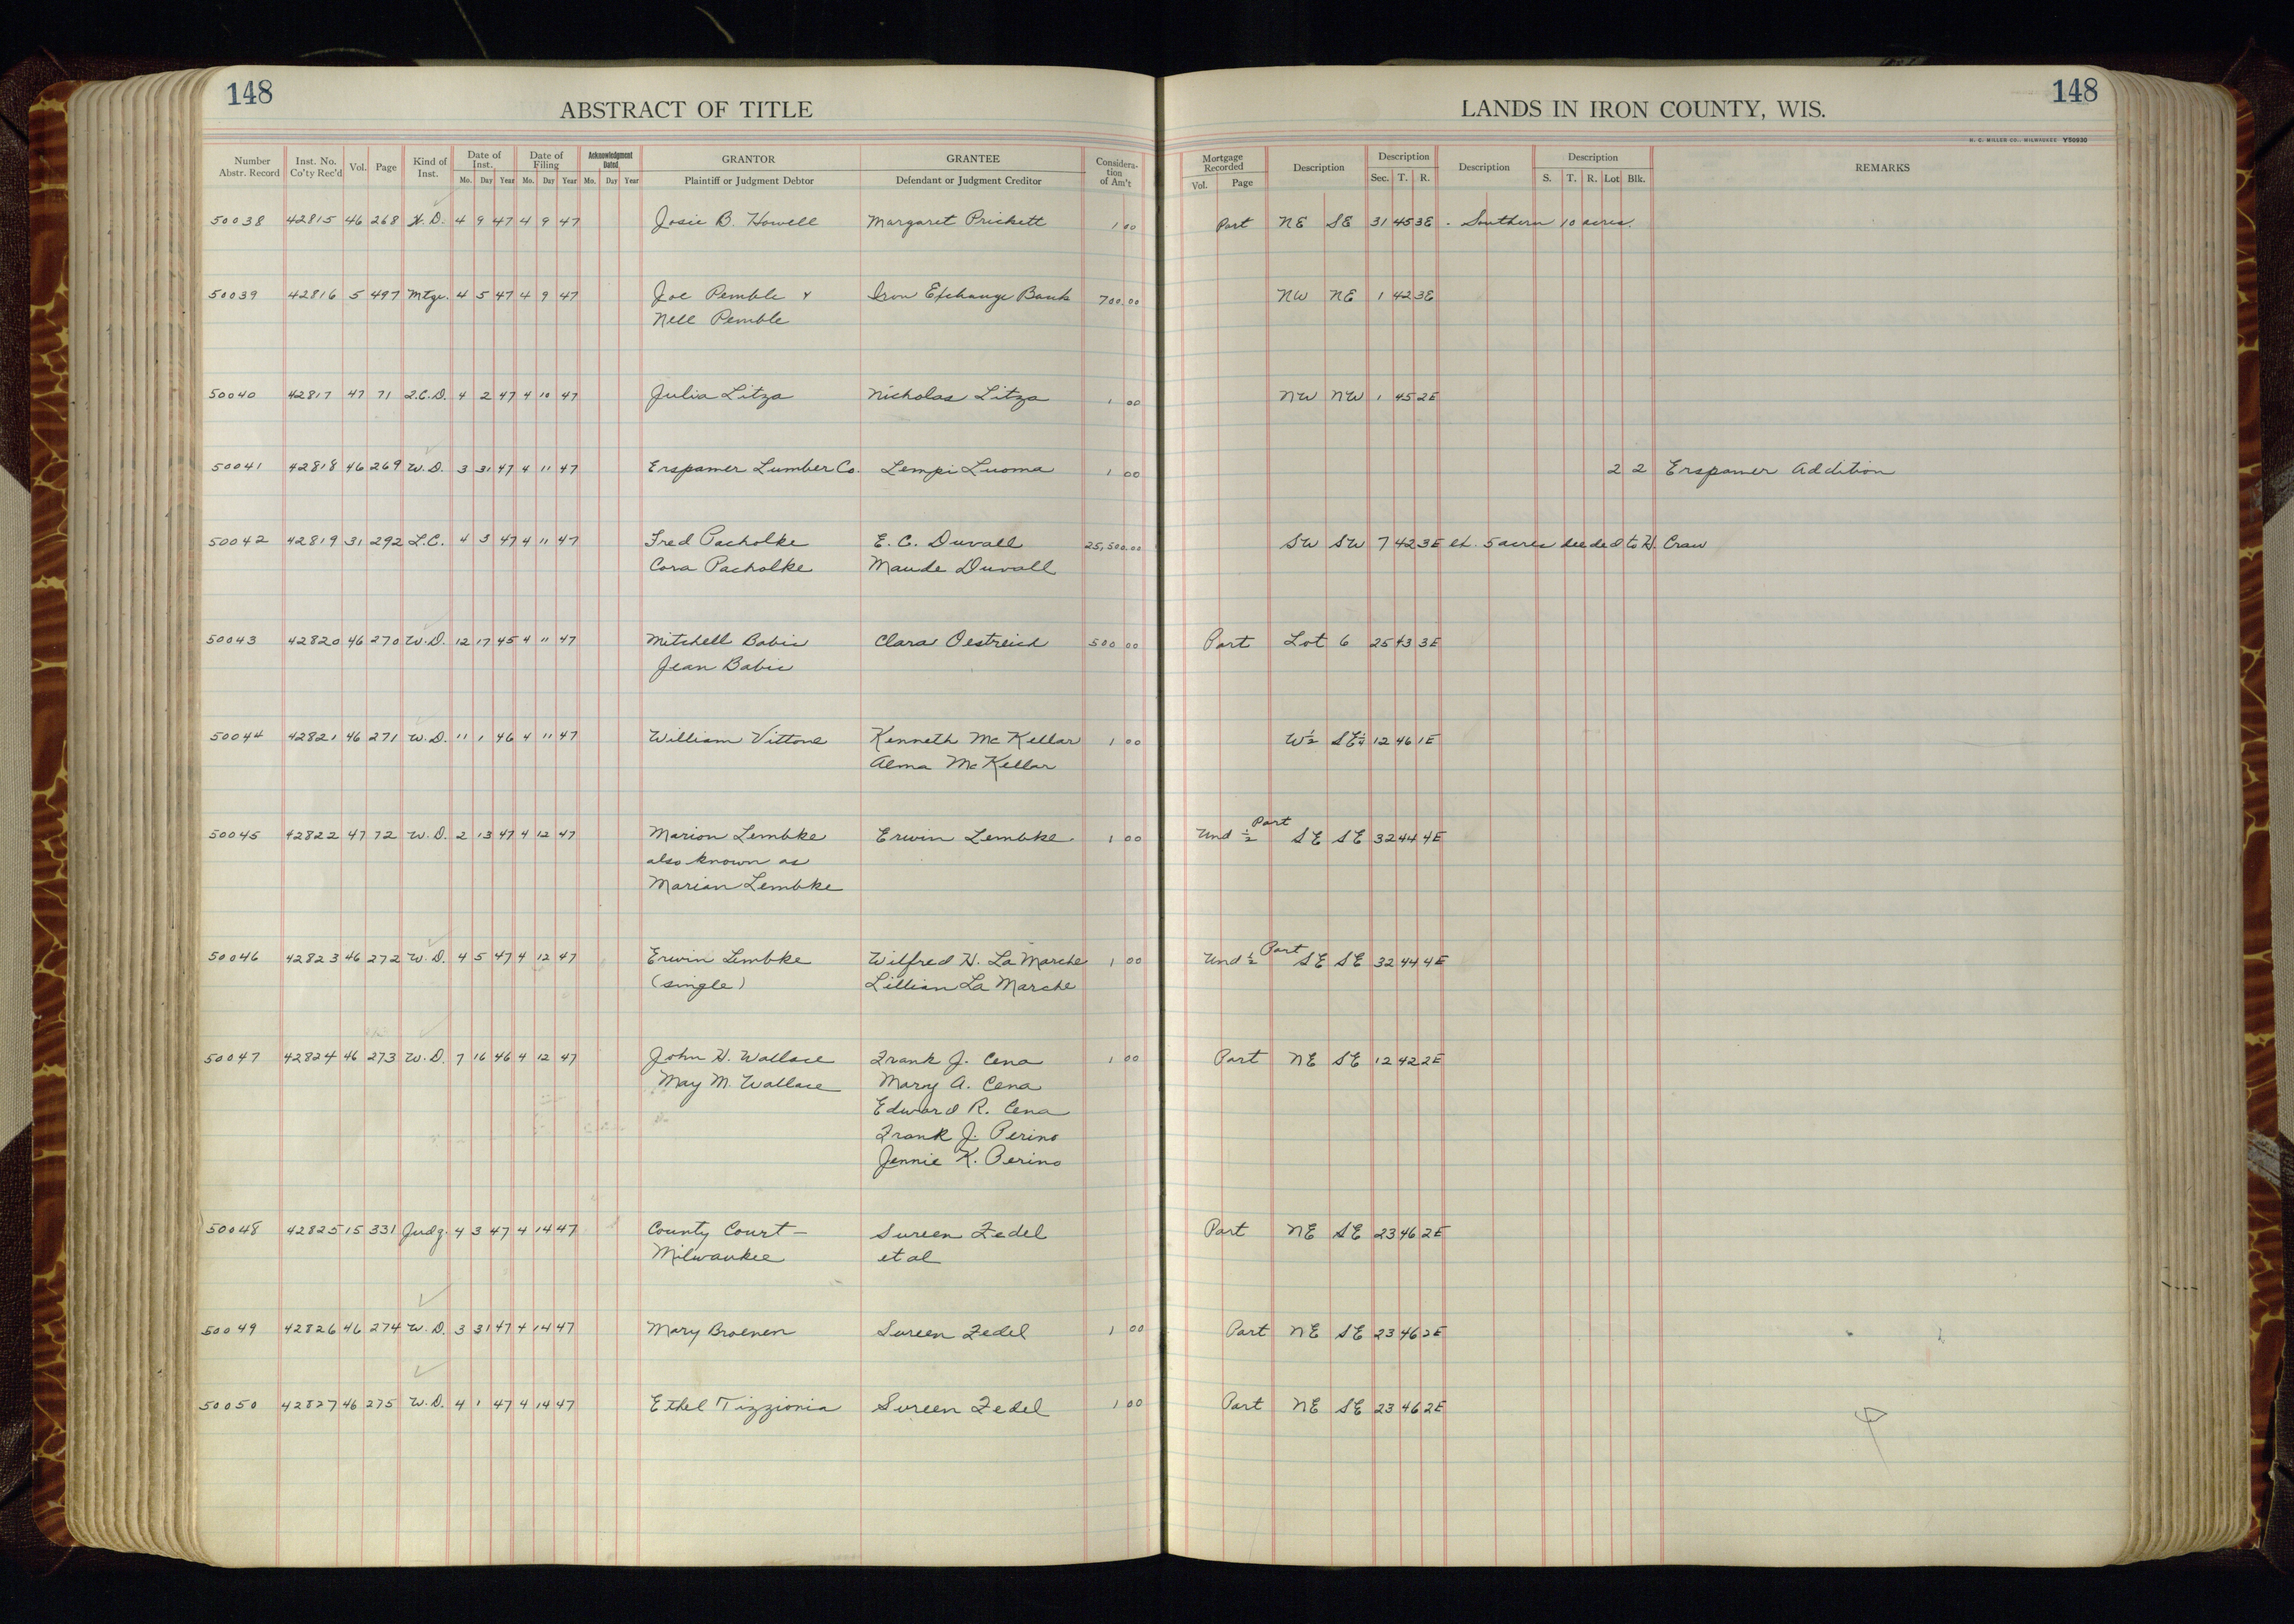 148
ABSTRACT OF TITLE
LANDS IN IRON COUNTY, WIS.
148
H. C. MILLER CO., MILWAUKEE Y50930
Number Abstr. Record | Inst. No. Co'ty Rec'd | Vol. | Page | Kind of Inst. | Date of Inst. Mo. Day Year | Date of Filing Mo. Day Year | Acknowledgment Dated Mo. Day Year | GRANTOR Plaintiff or Judgment Debtor | GRANTEE Defendant or Judgment Creditor | Considera-tion of Am't | Mortgage Recorded Vol. Page | Description | Description Sec. T. R. | Description | Description S. T. R. Lot Blk. | REMARKS
50038 42815 46 268 W.D. 4 9 47 4 9 47 Josie B. Howell Margaret Prickett 1 00 Part NE SE 31 45 3E - Southern 10 acres.
50039 42816 5 497 Mtge. 4 5 47 4 9 47 Joe Pemble & Iron Exchange Bank 700.00 NW NE 1 42 3E
Nell Pemble
50040 42817 47 71 2.C.D. 4 2 47 4 10 47 Julia Litza Nicholas Litza 1 00 NW NW 1 45 2E
50041 42818 46 269 W.D. 3 31 47 4 11 47 Erspamer Lumber Co. Lempi Luoma 1 00 2 2 Erspamer Addition
50042 42819 31 292 L.C. 4 3 47 4 11 47 Fred Pacholke E. C. Duvall 25,500.00 SW SW 7 42 3E ex. 5 acres deeded to H. Craw
Cora Pacholke Maude Duvall
50043 42820 46 270 W.D. 12 17 45 4 11 47 Mitchell Babic Clara Oestreich 500 00 Part Lot 6 25 43 3E
Jean Babic
50044 42821 46 271 W.D. 11 1 46 4 11 47 William Vittone Kenneth McKellar 1 00 W½ SE¼ 12 46 1E
Alma McKellar
50045 42822 47 72 W.D. 2 13 47 4 12 47 Marion Lembke Erwin Lembke 1 00 Und ½ Part SE SE 32 44 4E
also known as
Marian Lembke
50046 42823 46 272 W.D. 4 5 47 4 12 47 Erwin Lembke Wilfred H. La Marche 1 00 Und ½ Part SE SE 32 44 4E
(single) Lillian La Marche
50047 42824 46 273 W.D. 7 16 46 4 12 47 John H. Wallace Frank J. Cena 1 00 Part NE SE 12 42 2E
May M. Wallace Mary A. Cena
Edward R. Cena
Frank J. Perino
Jennie K. Perino
50048 42825 15 331 Judg. 4 3 47 4 14 47 County Court — Sureen Zedel Part NE SE 23 46 2E
Milwaukee et al
50049 42826 46 274 W.D. 3 31 47 4 14 47 Mary Broenen Sureen Zedel 1 00 Part NE SE 23 46 2E
50050 42827 46 275 W.D. 4 1 47 4 14 47 Ethel Tizzionia Sureen Zedel 1 00 Part NE SE 23 46 2E